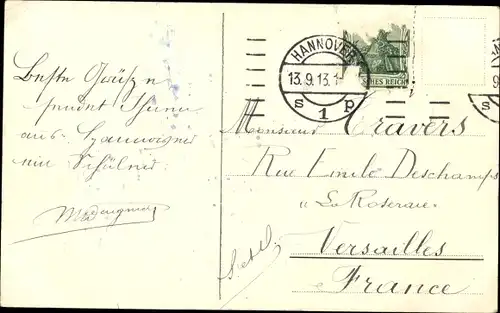 Beste Grüße
sendet Ihnen
aus Hannover
eine Schülerin
HANNOVER
13.9.13.1
s 1 p
SCHES REICH
Monsieur Travers
Rue Emile Deschamps
"La Roseraie"
Versailles
France